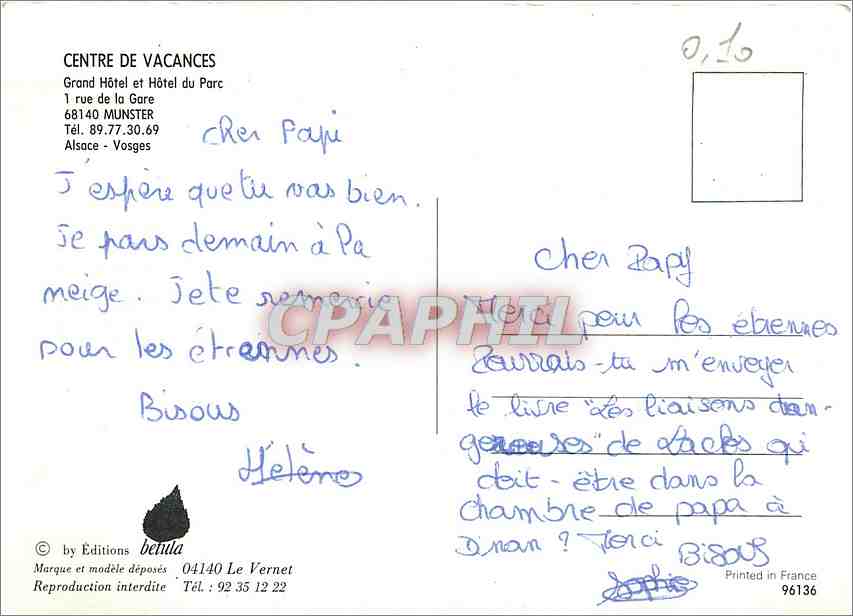 0,10
CENTRE DE VACANCES
Grand Hôtel et Hôtel du Parc
1 rue de la Gare
68140 MUNSTER
Tél. 89.77.30.69
Alsace - Vosges
Cher Papi
J'espère que tu vas bien.
Je pars demain à la
neige. Je te remercie
pour les étrennes.
Bisous
Hélène
Cher Papy
Merci pour les étrennes
Pourrais-tu m'envoyer
le livre "Les liaisons dan-
gereuses" de Laclos qui
doit-être dans la
chambre de papa à
Dinan ? Merci
Bisous
Sophie
CPAPHIL
© by Éditions betula
Marque et modèle déposés 04140 Le Vernet
Reproduction interdite Tél. : 92 35 12 22
Printed in France
96136